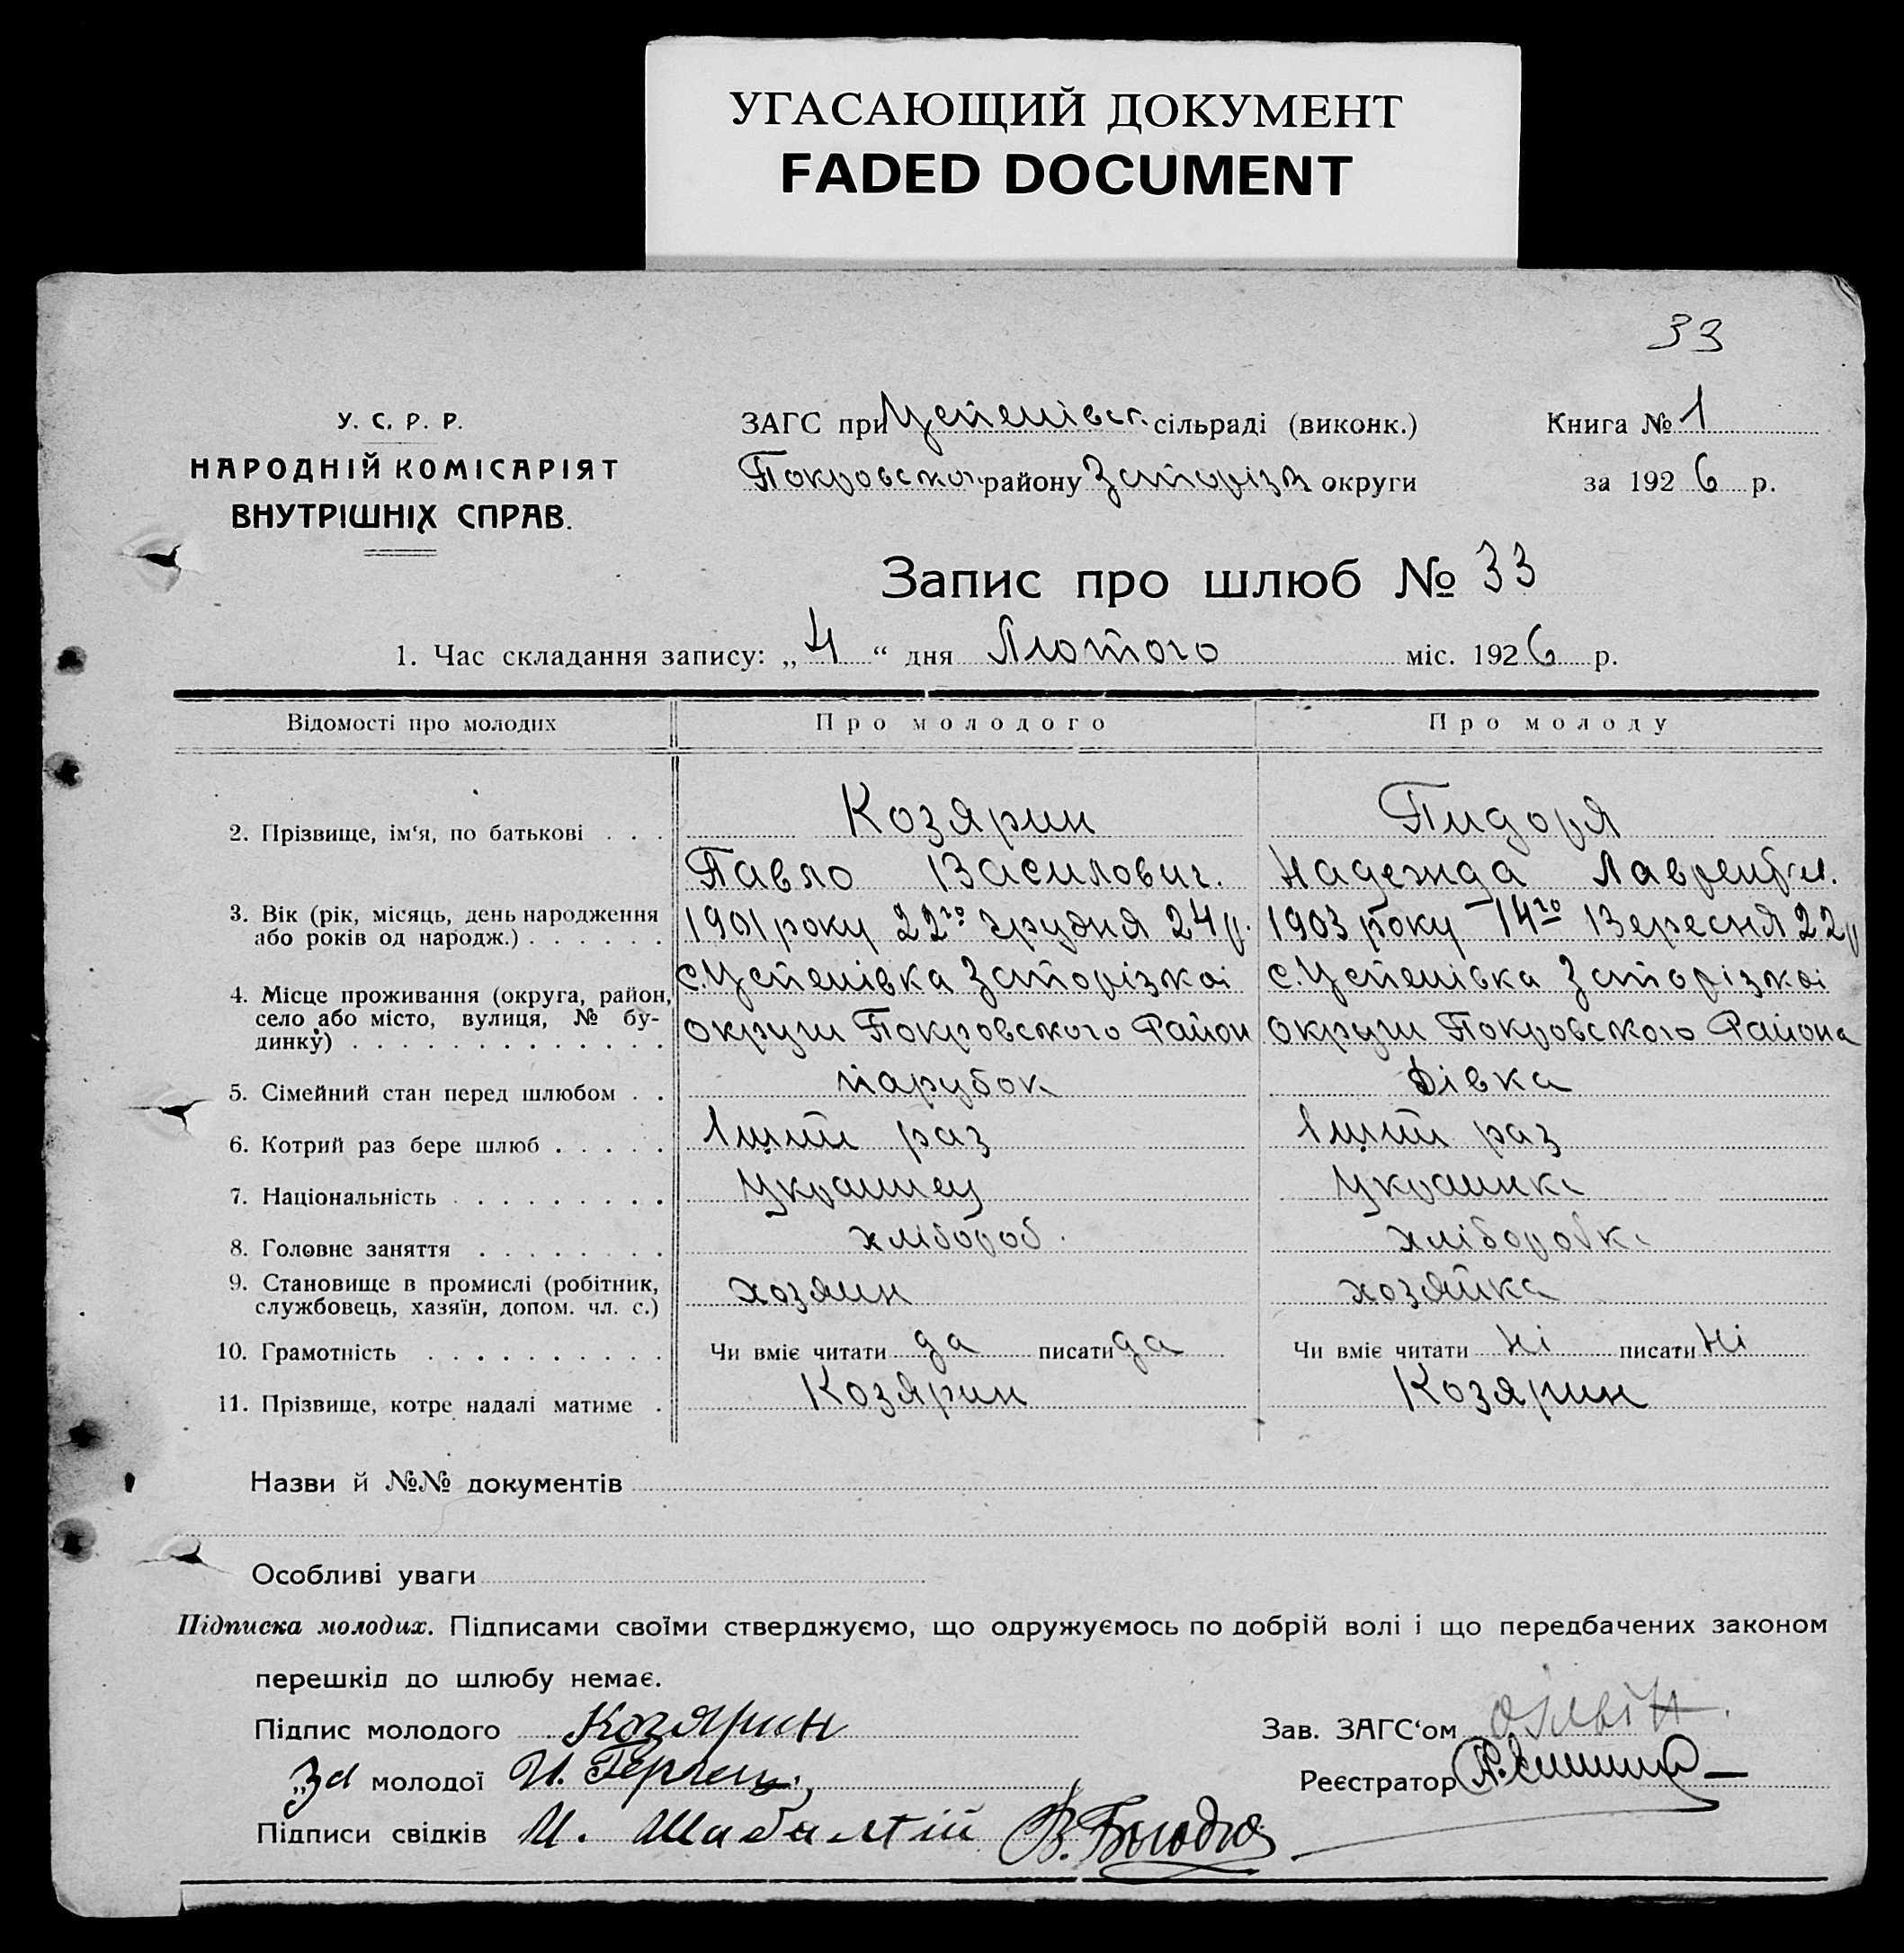 УГАСАЮЩИЙ ДОКУМЕНТ
FADED DOCUMENT
33
У. С. Р. Р.
НАРОДНІЙ КОМІСАРІЯТ
ВНУТРІШНІХ СПРАВ.
ЗАГС при Успенівск. сільраді (виконк.)
Покровськог району Запорізк округи
Книга № 1
за 1926 р.
Запис про шлюб № 33
1. Час складання запису: „4“ дня Лютого міс. 1926 р.
Відомості про молодих Про молодого Про молоду
2. Прізвище, ім‘я, по батькові . . . Козярин Пидоря
Павло Василович. Надежда Лаврентьи.
3. Вік (рік, місяць, день народження
або років од народж.) . . . . . . 1901 року 22го грудня 24 р. 1903 року 14го Вересня 22 р
с. Успенівка Запорізкоі с. Успенівка Запорізкоі
4. Місце проживання (округа, район,
село або місто, вулиця, № бу-
динку) . . . . . . . . . . . . . округи Покровського Район округи Покровського Района
5. Сімейний стан перед шлюбом . . парубок Дівка
6. Котрий раз бере шлюб . . . . . 1ший раз 1ший раз
7. Національність . . . . . . . . . Украинец Украинка
8. Головне заняття . . . . . . . . хлібороб. хлібороб­ка
9. Становище в промислі (робітник,
службовець, хазяїн, допом. чл. с.) хозяин хозяйка
10. Грамотність . . . . . . . . . . Чи вміє читати да писати да Чи вміє читати Ні писати Ні
11. Прізвище, котре надалі матиме . Козярин Козярин
Назви й №№ документів
Особливі уваги
Підписка молодих. Підписами своїми стверджуємо, що одружуємось по добрій волі і що передбачених законом
перешкід до шлюбу немає.
Підпис молодого Козярин
Зав. ЗАГС‘ом
„За молодої И.
Реєстратор
Підписи свідків И.